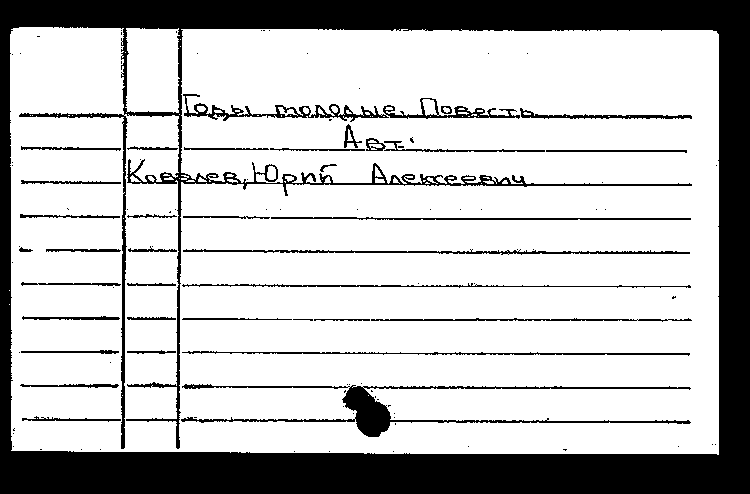 Годы молодые. Повесть
Авт.
Ковалев, Юрий Алексеевич